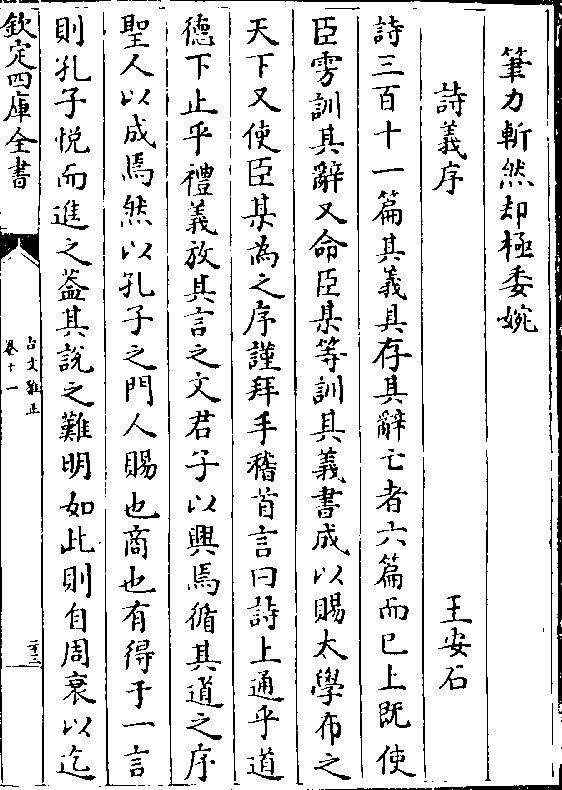 筆力斬然却極委婉
詩義序
王安石
詩三百十一篇其義具存其辭亡者六篇而已上既使
臣雱訓其辭又命臣某等訓其義書成以賜太學布之
天下又使臣某為之序謹拜手稽首言曰詩上通乎道
德下止乎禮義放其言之文君子以興焉循其道之序
聖人以成焉然以孔子之門人賜也商也有得于一言
則孔子悅而進之葢其說之難明如此則自周衰以迄
欽定四庫全書
古文雅正
卷十一
二十三